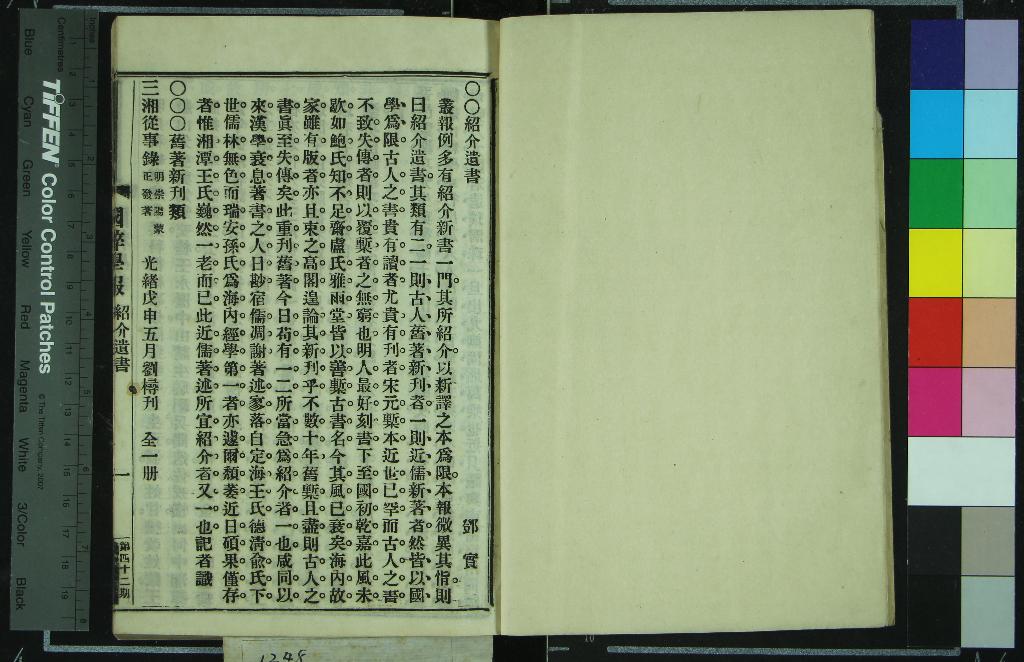 〇〇紹介遺書
鄧實
叢報例多有紹介新書一門其所紹介以新譯之本爲限本報微異其恉則
曰紹介遺書其類有二一則古人舊著新刊者一則近儒新著者然皆以國
學爲限古人之書貴有讀者尤貴有刊者宋元槧本近世已罕而古人之書
不致失傳者則以覆槧者之無窮也明人最好刻書下至國初乾嘉此風未
歇如鮑氏知不足齋盧氏雅雨堂皆以善槧古書名今其風已衰矣海內故
家雖有版者亦且束之高閣遑論其新刊乎不數十年舊槧且盡則古人之
書眞至失傳矣此重刊舊著今日苟有一二所當急爲紹介者一也咸同以
來漢學衰息著書之人日尠宿儒凋謝著述寥落自定海王氏德淸兪氏下
世儒林無色而瑞安孫氏爲海內經學第一者亦遽爾頹萎近日碩果僅存
者惟湘潭王氏巍然一老而已此近儒著述所宜紹介者又一也記者識
〇〇〇舊著新刊類
三湘從事錄 明崇陽蒙正發著 光緒戊申五月劉樽刊 全一册
國粹學報 紹介遺書 一 第四十二期
Inches
Centimetres
TIFFEN Color Control Patches
© The Tiffen Company, 2007
Blue Cyan Green Yellow Red Magenta White 3/Color Black
1248